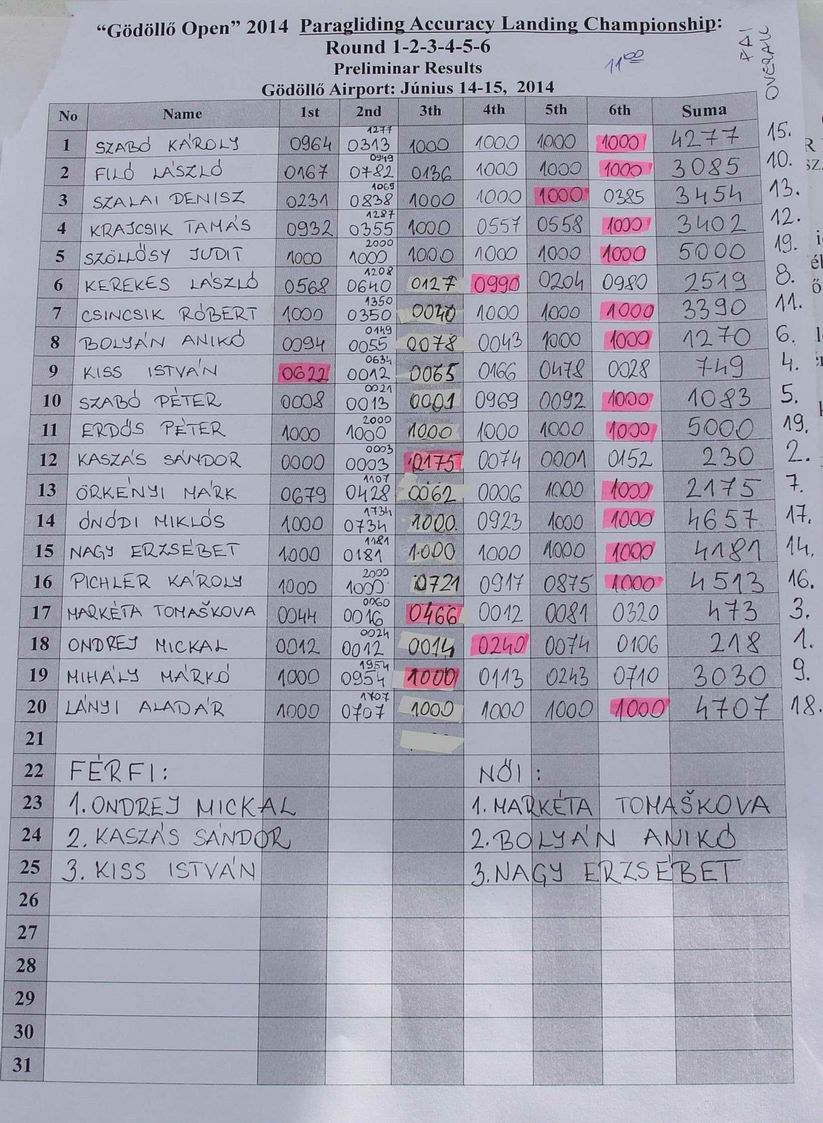 “Gödöllő Open” 2014 Paragliding Accuracy Landing Championship:
Round 1-2-3-4-5-6
Preliminar Results
11⁰⁰
Gödöllő Airport: Június 14-15, 2014
OVERALL
No Name 1st 2nd 3th 4th 5th 6th Suma
1 SZABÓ KÁROLY 0964 1277 0313 1000 1000 1000 1000 4277 15.
2 FILÓ LÁSZLÓ 0167 0949 0782 0136 1000 1000 1000 3085 10.
3 SZALAI DENISZ 0231 1069 0838 1000 1000 1000 0385 3454 13.
4 KRAJCSIK TAMÁS 0932 1287 0355 1000 0557 0558 1000 3402 12.
5 SZÖLLŐSY JUDIT 1000 2000 1000 1000 1000 1000 1000 5000 19.
6 KEREKES LÁSZLÓ 0568 1208 0640 0127 0990 0204 0980 2519 8.
7 CSINCSIK RÓBERT 1000 1350 0350 0040 1000 1000 1000 3390 11.
8 BOLYÁN ANIKÓ 0094 0149 0055 0078 0043 1000 1000 1270 6.
9 KISS ISTVÁN 0622 0634 0012 0065 0166 0478 0028 749 4.
10 SZABÓ PÉTER 0008 0021 0013 0001 0969 0092 1000 1083 5.
11 ERDŐS PÉTER 1000 2000 1000 1000 1000 1000 1000 5000 19.
12 KASZÁS SÁNDOR 0000 0003 0003 0175 0074 0001 0152 230 2.
13 ÖRKÉNYI MÁRK 0679 1107 0428 0062 0006 1000 1000 2175 7.
14 ÓNÓDI MIKLÓS 1000 1734 0734 1000 0923 1000 1000 4657 17.
15 NAGY ERZSÉBET 1000 1181 0181 1000 1000 1000 1000 4181 14.
16 PICHLER KÁROLY 1000 2000 1000 0721 0917 0875 1000 4513 16.
17 MARKÉTA TOMAŠKOVA 0044 0060 0016 0466 0012 0081 0320 473 3.
18 ONDREJ MICKAL 0012 0024 0012 0014 0240 0074 0106 218 1.
19 MIHÁLY MÁRKÓ 1000 1954 0954 1000 0113 0243 0710 3030 9.
20 LÁNYI ALADÁR 1000 1707 0707 1000 1000 1000 1000 4707 18.
21
22 FÉRFI: NŐI:
23 1. ONDREJ MICKAL 1. MARKÉTA TOMAŠKOVA
24 2. KASZÁS SÁNDOR 2. BOLYÁN ANIKÓ
25 3. KISS ISTVÁN 3. NAGY ERZSÉBET
26
27
28
29
30
31